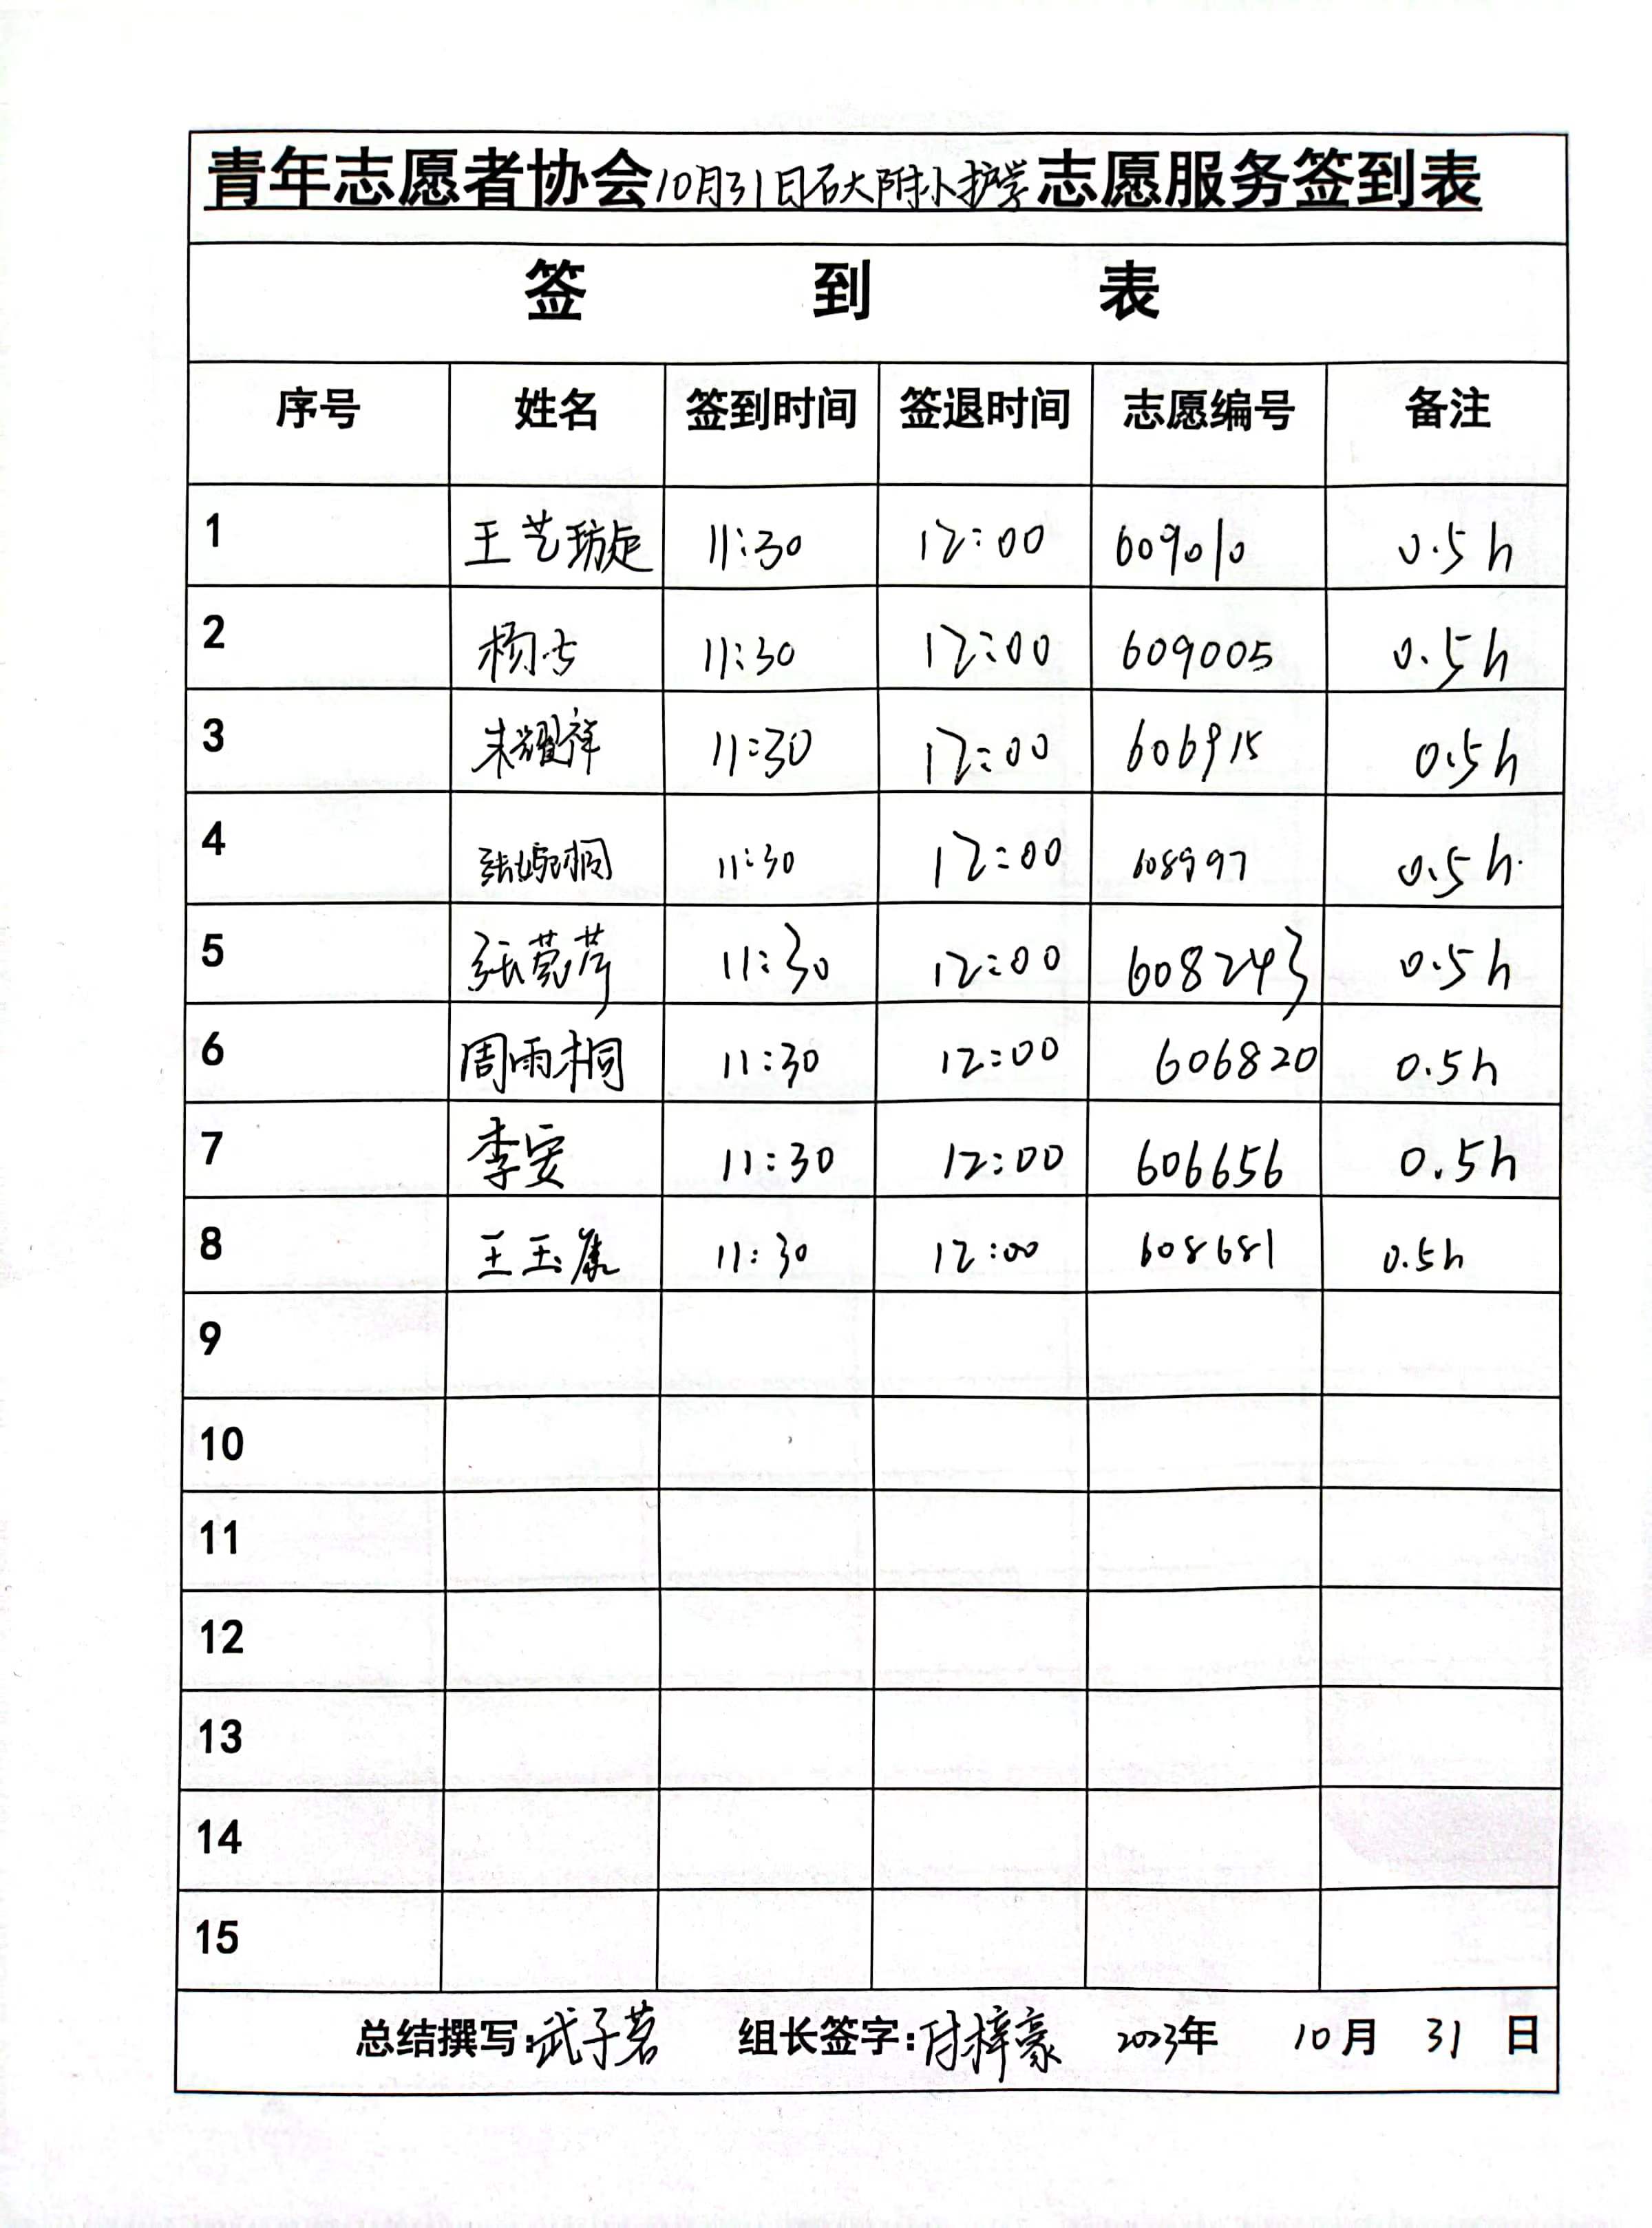 青年志愿者协会10月31日石大附小护学志愿服务签到表
签 到 表
序号 姓名 签到时间 签退时间 志愿编号 备注
1 王艺璇 11:30 12:00 609010 0.5h
2 杨 11:30 12:00 609005 0.5h
3 朱耀祥 11:30 12:00 606915 0.5h
4 张屿桐 11:30 12:00 608997 0.5h
5 张莞芹 11:30 12:00 608243 0.5h
6 周雨桐 11:30 12:00 606820 0.5h
7 李安 11:30 12:00 606656 0.5h
8 王玉 11:30 12:00 608681 0.5h
9
10
11
12
13
14
15
总结撰写:武子茗 组长签字:付梓豪 2023年 10月 31 日